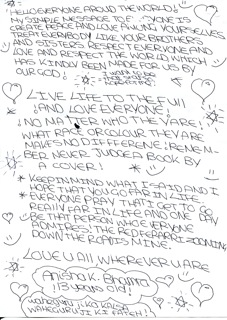 "HELLO EVERYONE AROUND THE WORLD!
MY SIMPLE MESSAGE TO EVERYONE IS
PEACE AND LOVE YOURSELVES
TREAT EVERYBODY LIKE YOUR BROTHERS
AND SISTERS RESPECT EVERYONE AND
LOVE AND RESPECT THE WORLD WHICH
HAS KINDLY BEEN MADE FOR US BY
OUR GOD!
LIVE LIFE TO THE FULL
AND LOVE EVERYONE!
NO MATTER WHO THEY ARE,
WHAT RACE OR COLOUR THEY ARE
MAKES NO DIFFERENCE! REMEM-
BER NEVER JUDGE A BOOK BY
A COVER!
KEEP IN MIND WHAT I SAID AND I
HOPE THAT YOU IN LIFE.
EVERYONE PRAY THAT I GET TO GO
REALLY FAR IN LIFE AND ONE DAY
BE THAT PERSON WHO EVERYONE
ADMIRES! THE RED FERRARI ZOOMING
DOWN THE ROAD IS MINE!
LOVE U ALL WHEREVER U ARE
13 years old!
WAHEGURU JI KA KALSA
WAHEGURU JI KI FATEH!